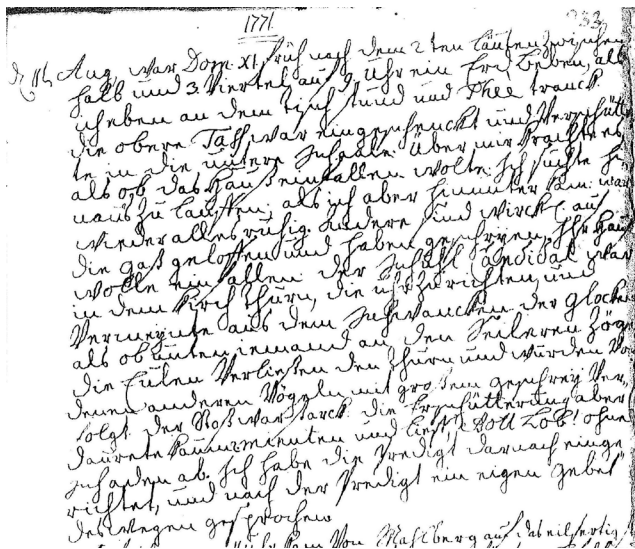 1771
233
d. 11t Aug. war Dom. XI. früh nach dem 2ten Läuten zwischen
halb und 3 Viertel auf 9 Uhr ein Erd Beben, als
ich eben an dem Tisch stund und Thee tranck
die obere Tass war eingeschenckt und Verschütte
te in die untere Schaale. Über mir krachte es
als ob das Hauß einfallen wolte. Ich suchte hi
naus zu lauffen, als ich aber hinunter kam war
wieder alles ruhig. Andere sind wirckl. auf
die Gaß geloffen und haben geschryen, Ihr Hauß
wolle einfallen. der Schuhl Candidat war
in dem Kirch Thurn, die Uhr zu richten, und
Vermeynte aus dem Schwancken der Glocken
als ob unten jemand an den Seileren zöge
die Eulen Verließen den Thurn und wurden Von
denen anderen Vögeln mit großem Geschrey Ver-
folgt. der Stoß war starck. die Erschütterung aber
daurete kaum Minuten und lieff Gott Lob! ohne
schaden ab. Ich habe die Predigt darnach einge
richtet, und nach der Predigt ein eigen Gebet
deswegen gesprochen
Von Mahlberg auf das eilfertig